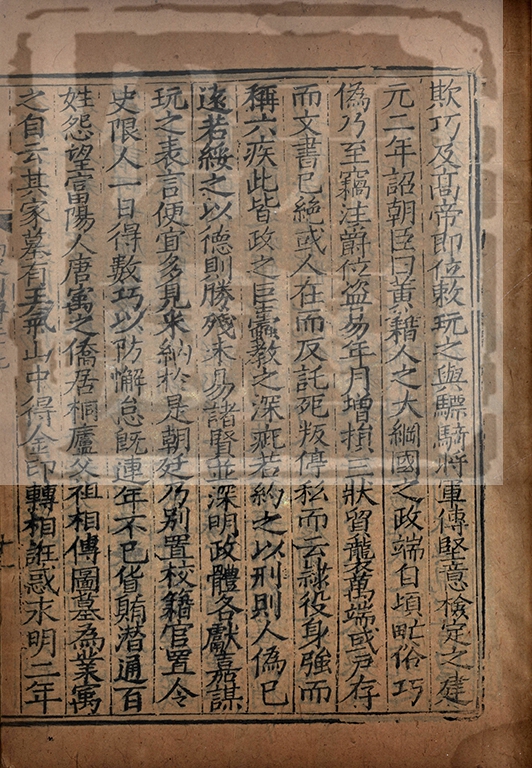 欺巧及髙帝即位敕玩之與驃騎將軍傅堅意檢定之建
元二年詔朝臣曰黄籍人之大綱國之政端自頃甿俗巧
偽乃至竊注爵位盗易年月増損三狀貿襲萬端或戸存
而文書已絶或人在而反託死叛停私而云隷役身強而
稱六疾此皆政之巨蠹教之深疵若約之以刑則人偽已
逺若綏之以德則勝殘未易諸賢並深明政體各獻嘉謀
玩之表言便宜多見采納於是朝廷乃别置校籍官置令
史限人一日得數巧以防懈怠既連年不已貨賄潛通百
姓怨望富陽人唐寓之僑居桐廬父祖相傳圖墓為業寓
之自云其家墓有王氣山中得金印轉相誑惑永明二年